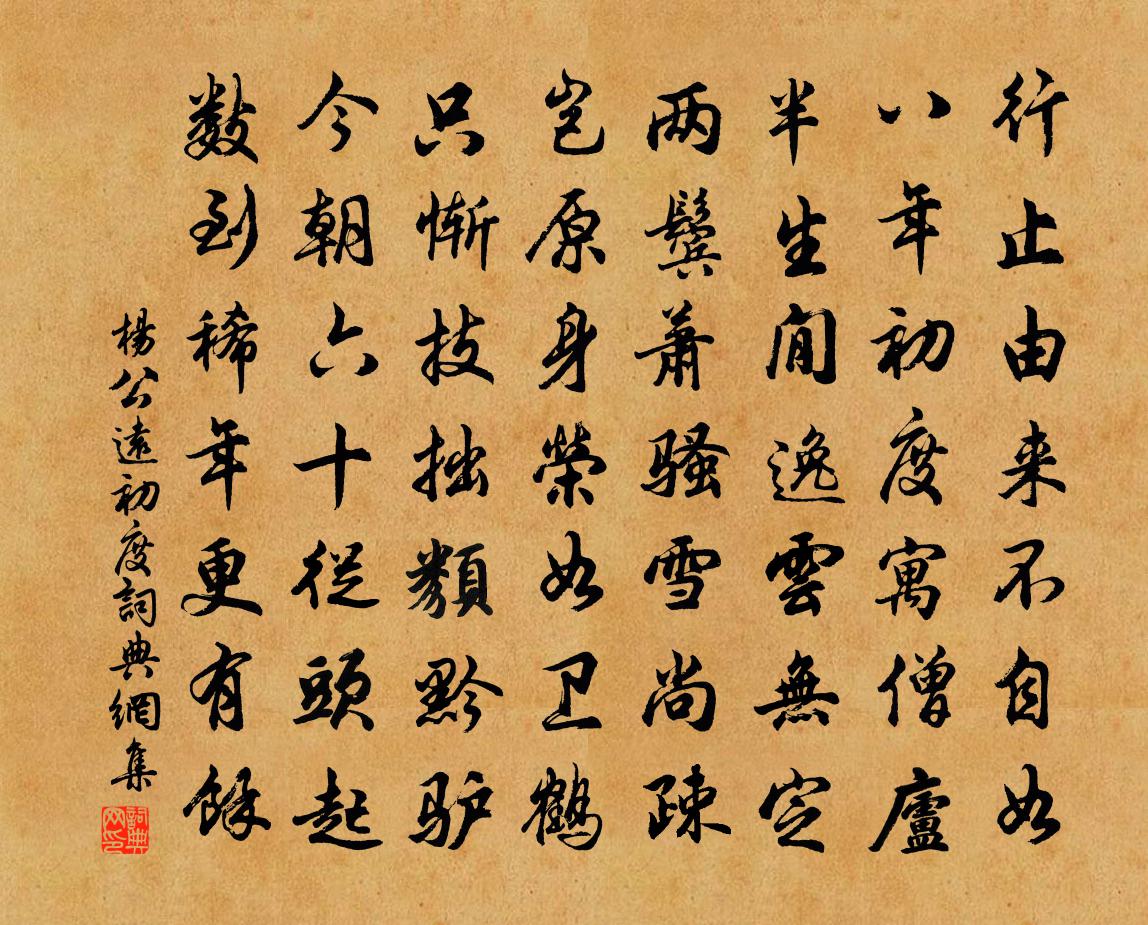 行止由来不自如
八年初度寓僧廬
半生閒逸雲無定
两鬓萧骚雪尚疎
岂原身榮如卫鶴
只慚技拙類黔驴
今朝六十從頭起
数到稀年更有餘
楊公遠初度詞典網集
詞典网印